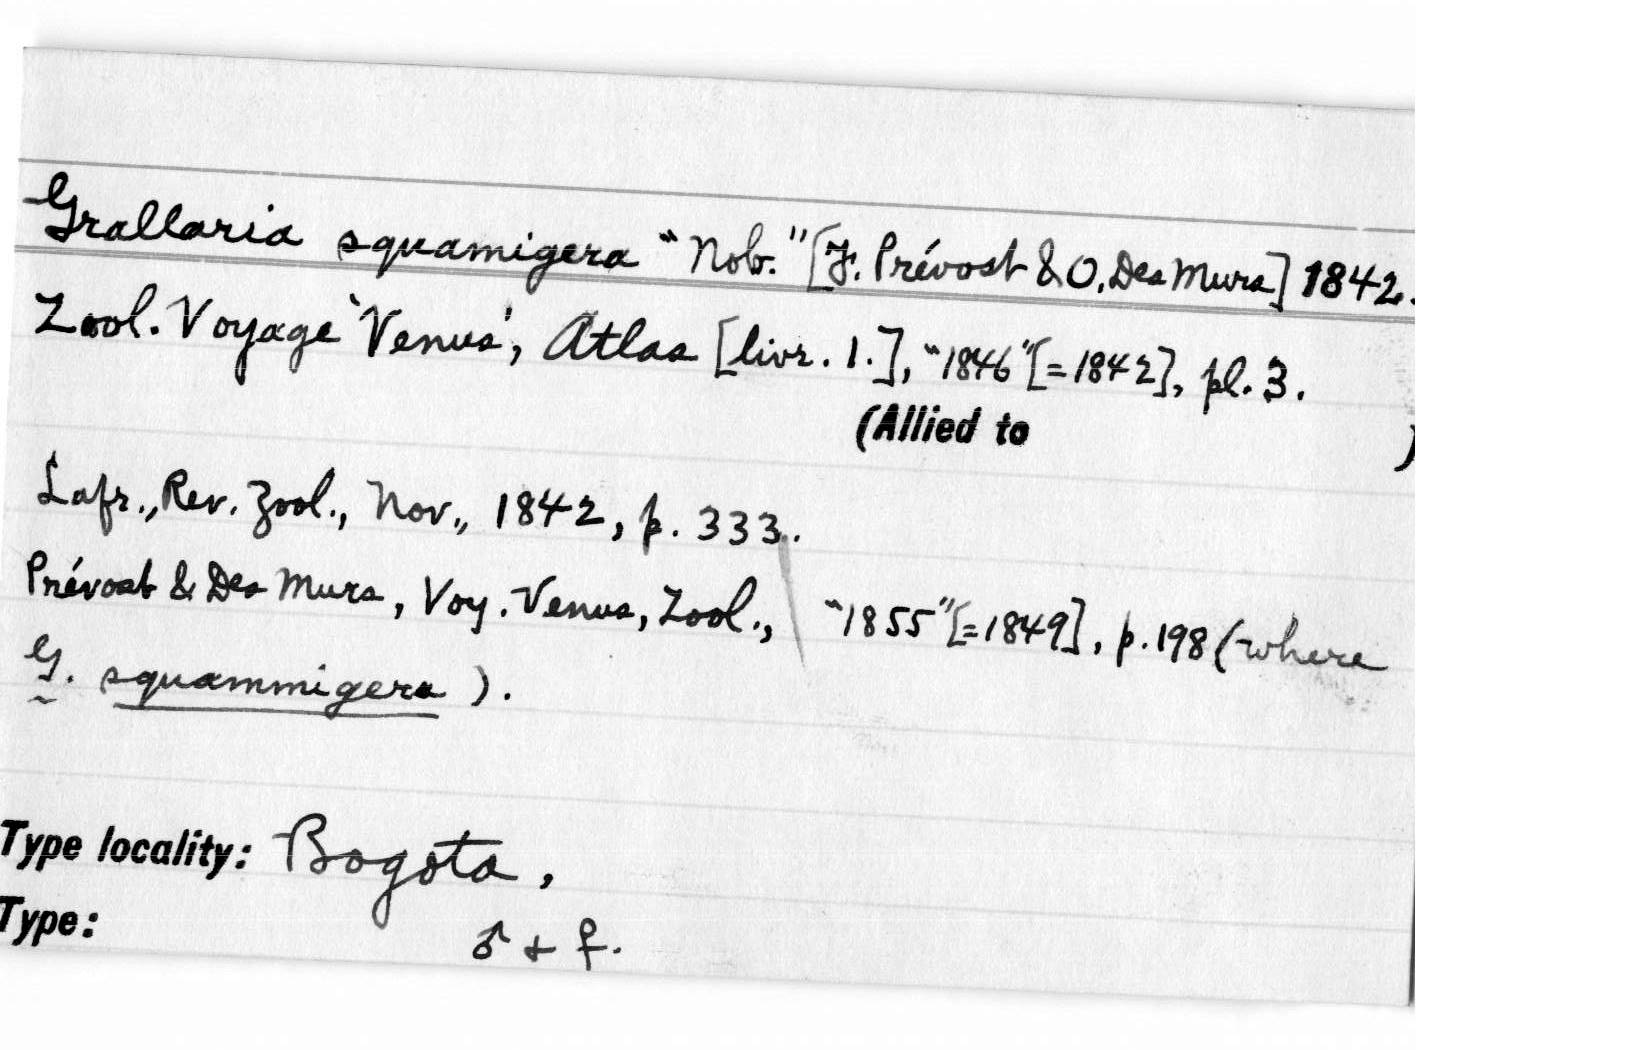 Grallaria squamigera "Nob." [F. Prévost & O. Des Murs] 1842.
Zool. Voyage 'Venus', Atlas [livr. 1.], "1846" [=1842], pl. 3.
(Allied to )
Lafr., Rev. Zool., Nov., 1842, p. 333.
Prévost & Des Murs, Voy. Venus, Zool., "1855" [=1849], p. 198 (where
G. squammigera ).
Type locality: Bogota,
Type: ♂ + ♀.